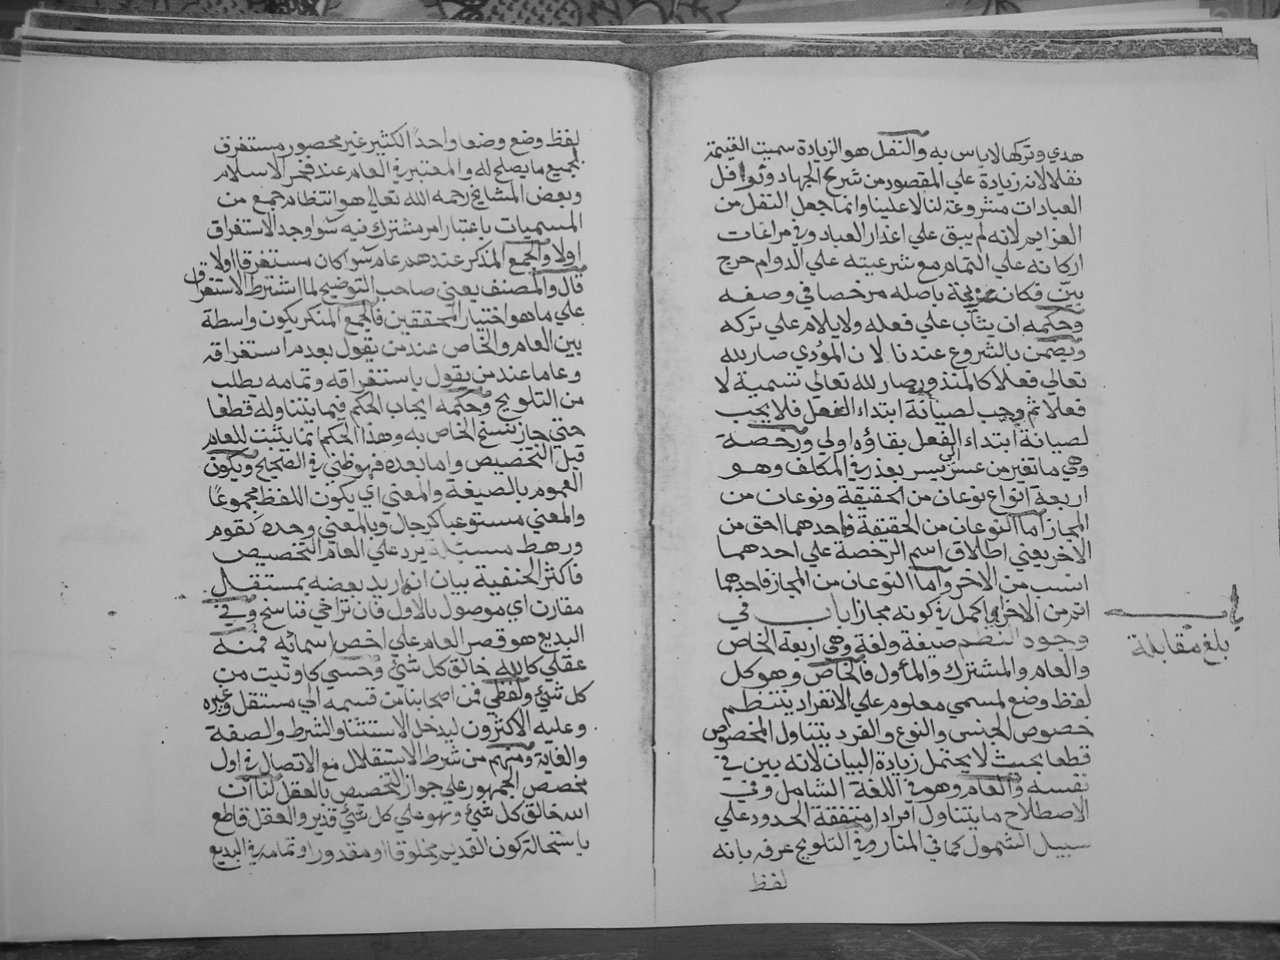 هدي وتركها لاباس به والنفل هو الزيادة سميت الغنيمة
نفلا لانه زيادة علي المقصود من شرع الجهاد ونوافل
العبادات مشروعة لنا لا علينا وانما جعل النفل من
العزايم لانه لم يبق علي اعذار العباد وفي مراعات
اركانه علي التمام مع شرعيته علي الدوام حرج
بين فكان عزيمة باصله مرخصا في وصفه
وحكمه ان يثاب علي فعله ولا يلام علي تركه
ويضمن بالشروع عندنا لان المؤدي صار لله
تعالي فعلا كالمنذور صار لله تعالي تسمية لا
فعلا ثم وجب لصيانة ابتداء الفعل فلا يجب
لصيانة ابتداء الفعل بقاؤه اولي ورخصة
وهي ما تغير من عسر الي يسر بعذر في المكلف وهو
اربعة انواع نوعان من الحقيقة ونوعان من
المجاز اما النوعان من الحقيقة فاحدهما احق من
الاخر يعني اطلاق اسم الرخصة علي احدهما
انسب من الاخر واما النوعان من المجاز فاحدهما
اتم من الاخر اي اكمل في كونه مجازا باب في
وجود النظم صيغة ولغة وهي اربعة الخاص
والعام والمشترك والمأول فالخاص وهو كل
لفظ وضع لمسمي معلوم علي الانفراد ينتظم
خصوص الجنس والنوع والفرد يتناول المخصوص
قطعا بحيث لا يحتمل زيادة البيان لانه بين في
نفسه والعام وهو في اللغة الشامل وفي
الاصطلاح ما يتناول افرادا متفقة الحدود علي
سبيل الشمول كما في المنار وفي التلويح عرفه بانه
لفظ
بلغ مقابلة
لفظ وضع وضعا واحدا لكثير غير محصور مستغرق
لجميع ما يصلح له والمعتبر في العام عند فخر الاسلام
وبعض المشايخ رحمه الله تعالي هو انتظام جمع من
المسميات باعتبار امر مشترك فيه سواوجد الاستغراق
اولا والجمع المنكر عندهم عام سواكان مستغرقا اولا
قال والمصنف يعني صاحب التوضيح لما اشترط الاستغراق
علي ما هو اختيار المحققين فالجمع المنكر يكون واسطة
بين العام والخاص عند من يقول بعدم استغراقه
وعاما عند من يقول باستغراقه وتمامه يطلب
من التلويح وحكمه ايجاب الحكم فيما يتناوله قطعا
حتي جاز نسخ الخاص به وهذا الحكم انما يثبت للعام
قبل التخصيص واما بعده فهو ظني في الصحيح ويكون
العموم بالصيغة والمعني اي يكون اللفظ مجموعا
والمعني مستوعبا كرجال وبالمعني وحده كقوم
ورهط يرد علي العام التخصيص
فاكثر الحنفية بيان انه اريد بعضه بمستقل
مقارن اي موصول بالاول فان تراخي فناسخ وفي
البديع هو قصر العام علي اخص اسمائه فمنه
عقلي كالله خالق كل شئ وحسي كاوتيت من
كل شئ ولفظي فمن اصحابنا من قسمه الي مستقل وغيره
وعليه الاكثرون ليدخل الاستثنا والشرط والصفة
والغاية ومنهم من شرط الاستقلال مع الاتصال في اول
مخصص الجمهور علي جواز التخصيص بالعقل لنا ان
الله خالق كل شئ وهو علي كل شئ قدير والعقل قاطع
باستحالة كون القديم مخلوقا او مقدورا وتمامه في البديع